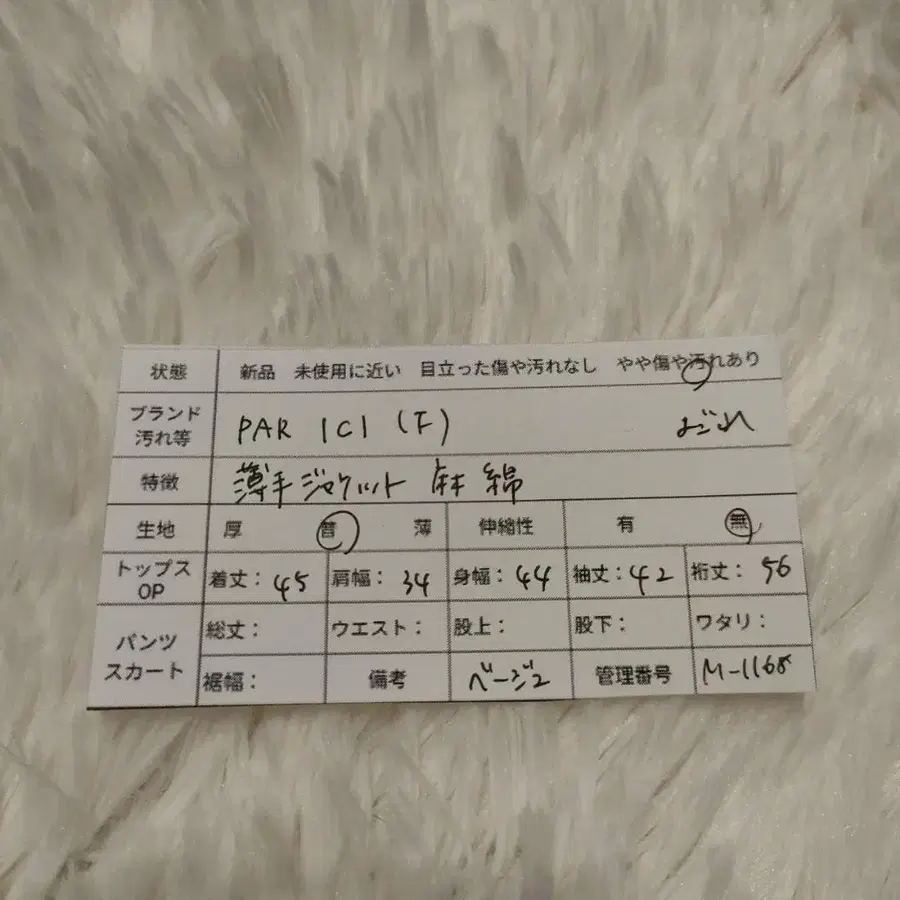 状態 新品 未使用に近い 目立った傷や汚れなし やや傷や汚れあり
ブランド
汚れ等 PAR ICI (F) よごれ
特徴 薄手ジャケット 麻 綿
生地 厚 普 薄 伸縮性 有 無
トップス
OP 着丈: 45 肩幅: 34 身幅: 44 袖丈: 42 裄丈: 56
パンツ
スカート 総丈: ウエスト: 股上: 股下: ワタリ:
裾幅: 備考 ベージュ 管理番号 M-1168